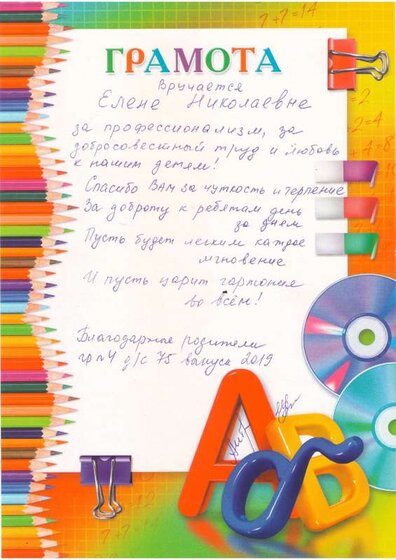 7+7=14
ГРАМОТА
Вручается
Елене Николаевне
за профессионализм, за
добросовестный труд и любовь
к нашим детям!
Спасибо Вам за чуткость и терпение
За доброту к ребятам день
за днём
Пусть будет лёгким каждое
мгновение
И пусть царит гармония
во всём!
Благодарные родители
гр №4 д/с 75 выпуск 2019
АБВ